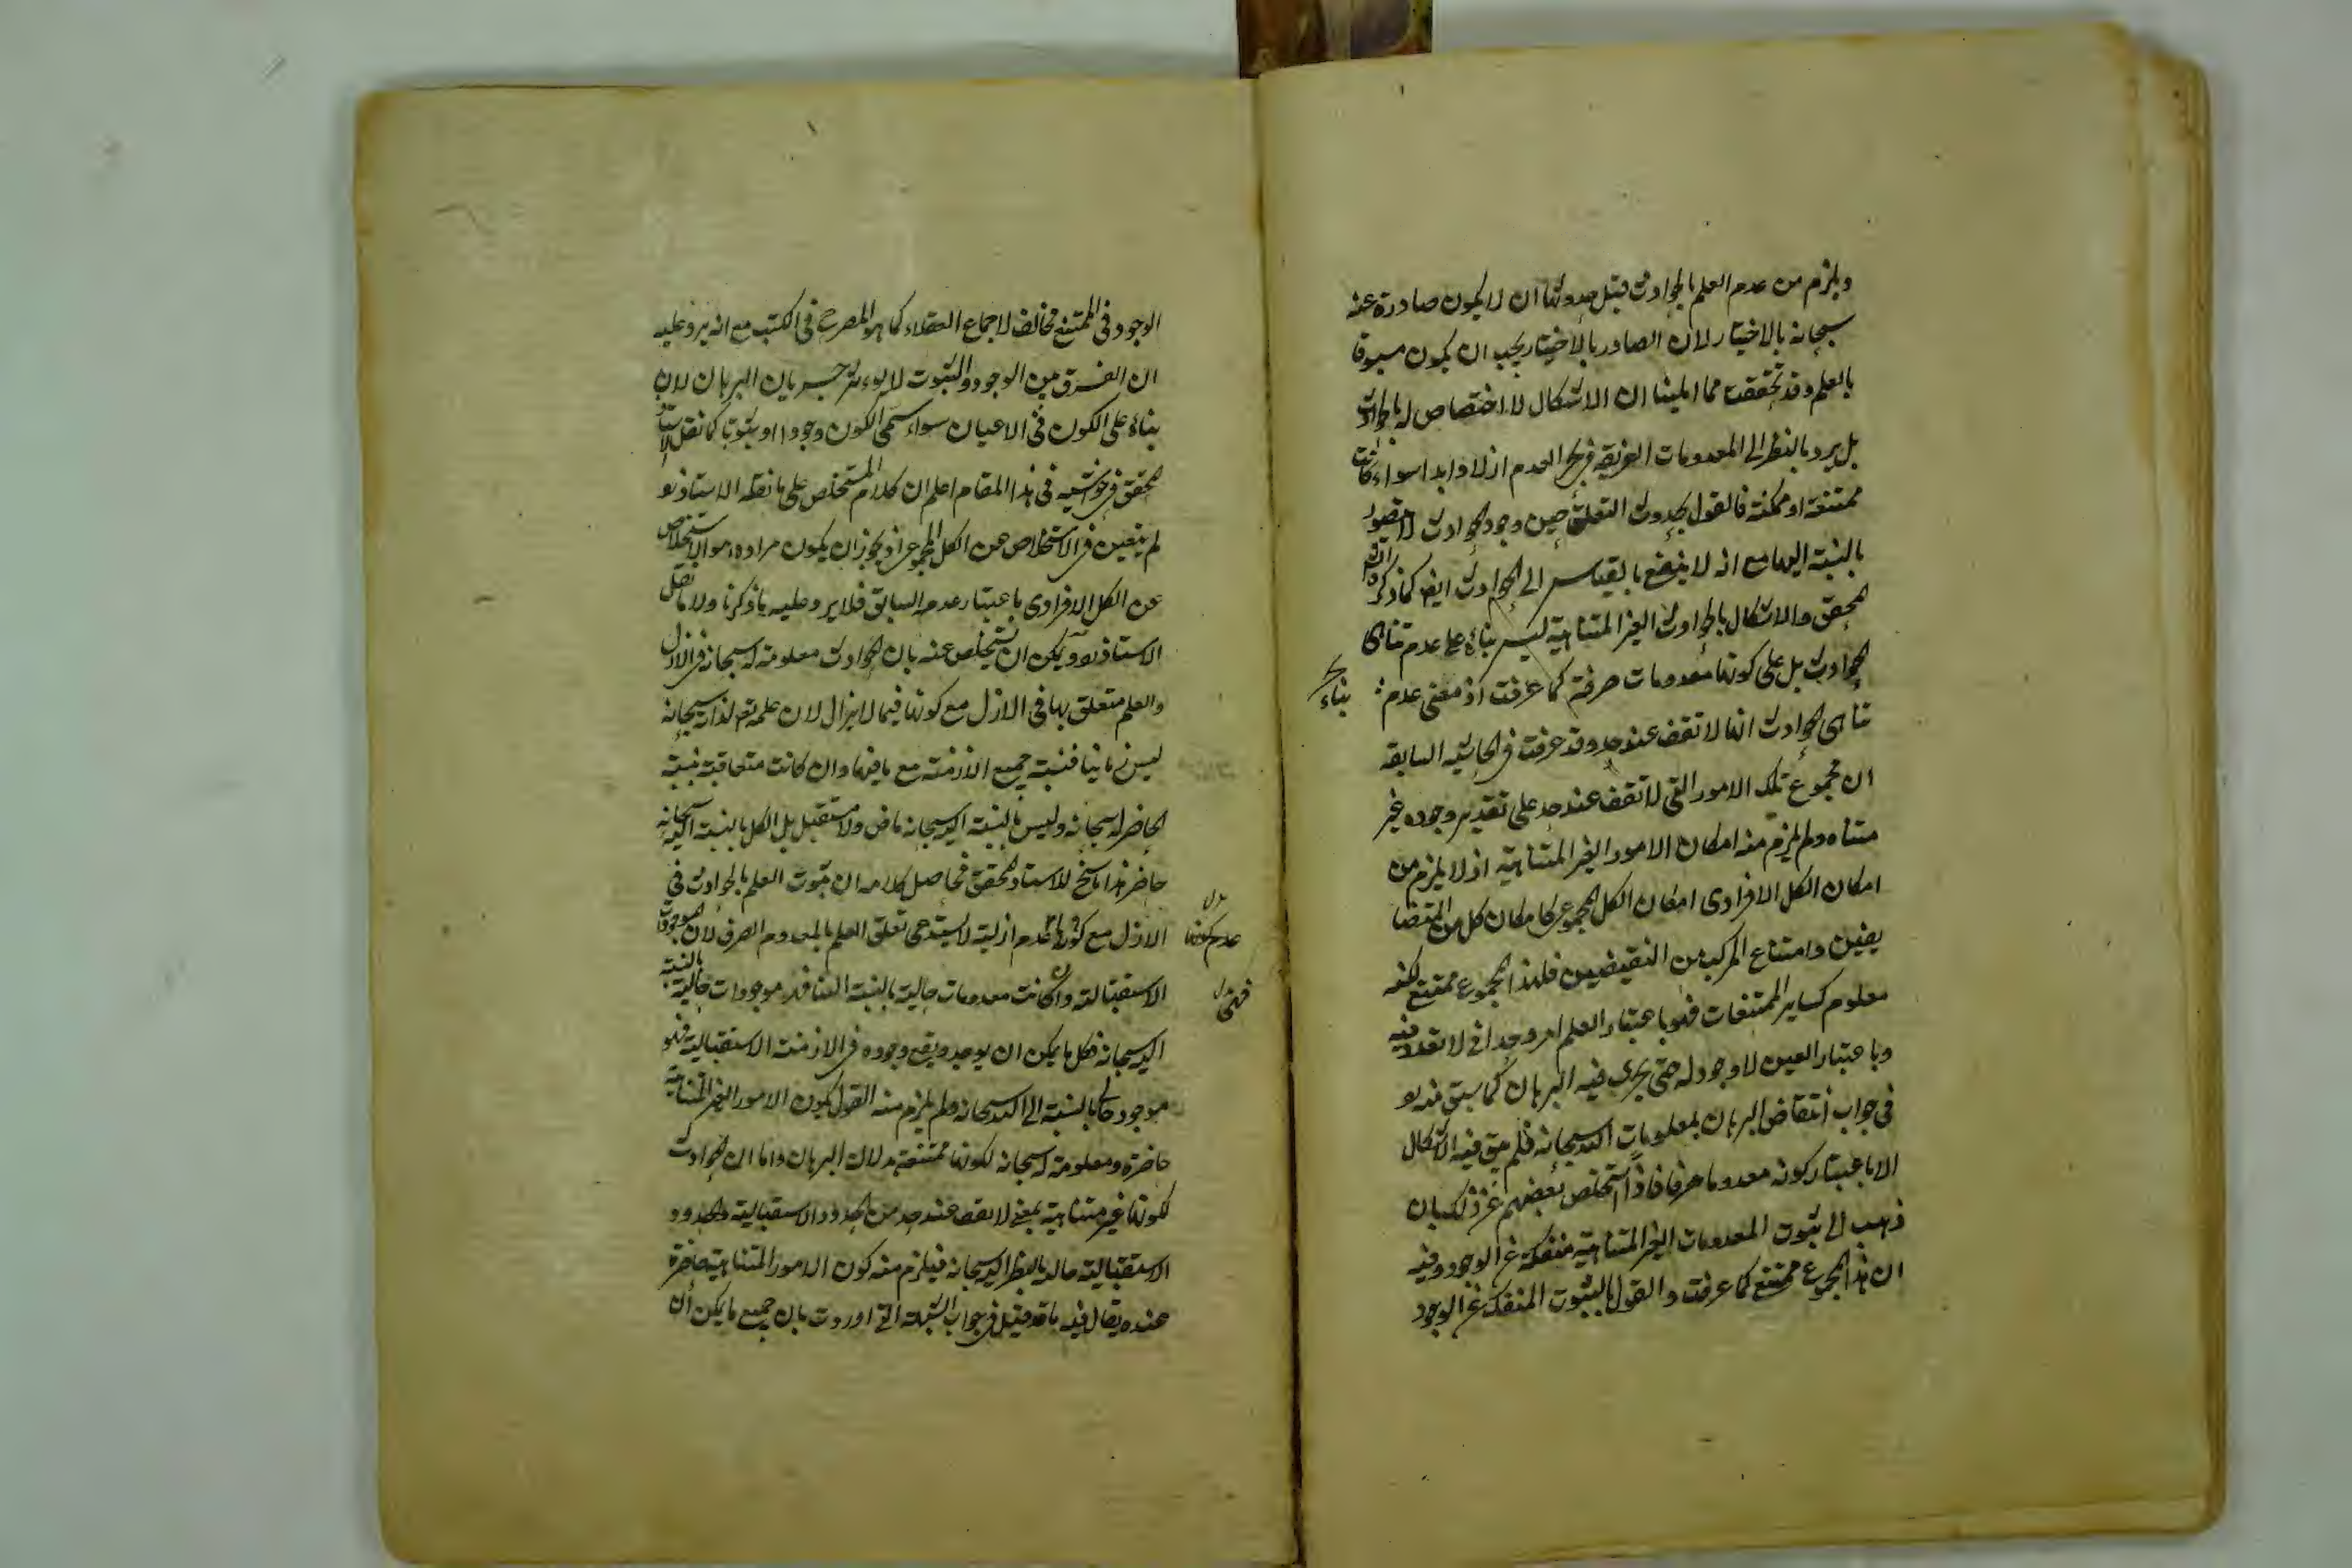 ويلزم من عدم العلم بالحوادث قبل حدوثها ان لا يكون صادرة عنه
سبحانه بالاختيار لان الصادر بالاختيار يجب ان يكون مسبوقا
بالعلم وقد تحققت مما املينا ان الاشكال لا اختصاص له بالحوادث
بل يرد بالنظر الى المعدومات الغريقة في بحر العدم ازلا وابدا سواء كانت
ممتنعة او ممكنة فالقول بحدوث التعلق حين وجود الحوادث لا يتصور
بالنسبة اليها مع انه لا ينفع بالقياس الى الحوادث ايضا كما ذكره
المحقق والاشكال بالحوادث الغير المتناهية ليس بناء على عدم تناهى
الحوادث بل على كونها معدومات صرفة كما عرفت اذ معنى عدم
بناء
تناهى الحوادث انها لا تقف عند حد وقد عرفت في الحاشيه السابقه
ان مجموع تلك الامور التي لا تقف عند حد على تقدير وجوده غير
متناه ولم يلزم منه امكان الامور الغير المتناهية اذ لا يلزم من
امكان الكل الافرادى امكان الكل المجموعى كامكان كل من المتضا
يفين وامتناع المركب من النقيضين فلهذا المجموع ممتنع لكنه
معلوم كساير الممتنعات فهو باعتبار العلم امر وحدانى لا تعدد فيه
وباعتبار العين لا وجود له حتى يجرى فيه البرهان كما سبق
في جواب انتقاض البرهان بمعلومات الله سبحانه فلم يبق فيه الاشكال
الا باعتبار كونه معدوما صرفا فاذا استخلص بعضهم عن ذلك بان
ذهب الى ثبوت المعدومات الغير المتناهية منفكة عن الوجود وفيه
ان هذا المجموع ممتنع كما عرفت والقول بالثبوت المنفك عن الوجود
الوجود في الممتنع مخالف لاجماع العقلاء كما هو المصرح في الكتب مع انه يرد عليه
ان الفرق بين الوجود والثبوت لا يؤثر جريان البرهان لان
بناءه على الكون في الاعيان سواء سمى الكون وجودا او ثبوتا كما نقل الاستاد
المحقق في حواشيه في هذا المقام اعلم ان كلام المستخلص على ما نقله الاستاذ
لم يتعين في الاستخلاص عن الكل المجموعى اذ يجوز ان يكون مراده هو الاستخلاص
عن الكل الافرادى باعتبار عدمه السابق فلا يرد عليه ما ذكرنا ولا ما نقل
الاستاذ ويمكن ان يستخلص عنه بان الحوادث معلومة له سبحانه في الازل
والعلم متعلق بها في الازل مع كونها فيما لا يزال لان علمه تعم لذاته سبحانه
ليس زمانيا فنسبة جميع الازمنة مع ما فيها وان كانت متعاقبة نسبة
الحاضر له سبحانه وليس بالنسبة اليه سبحانه ماض ولا مستقبل بل الكل بالنسبة اليه سبحانه
حاضر هذا ما سنح للاستاد المحقق فحاصل كلامه ان ثبوت العلم بالحوادث في
الازل مع عدم ازليته لا يستدعى تعلق العلم بالمعدوم الصرف لان الموجودات
عدم كونها
الاستقباليه وان كانت معدومات حالية بالنسبة الينا موجودات حالية بالنسبة
فهى
اليه سبحانه فكل ما يمكن ان يوجد ويقع وجوده في الازمنة الاستقبالية فهو
موجود حالى بالنسبة الى الله سبحانه ولم يلزم منه القول بكون الامور الغير المتناهية
حاضرة ومعلومة له سبحانه لكونها ممتنعة بدلالة البرهان واما ان الحوادث
لكونها غير متناهية بمعنى لا تقف عند حد من الحدود الاستقبالية والحدود
الاستقبالية حالية بالنظر اليه سبحانه فيلزم منه كون الامور المتناهية حاضرة
عنده يقال فيه ما قد قيل في جواب الشبهة التي اوردت بان جميع ما يمكن ان